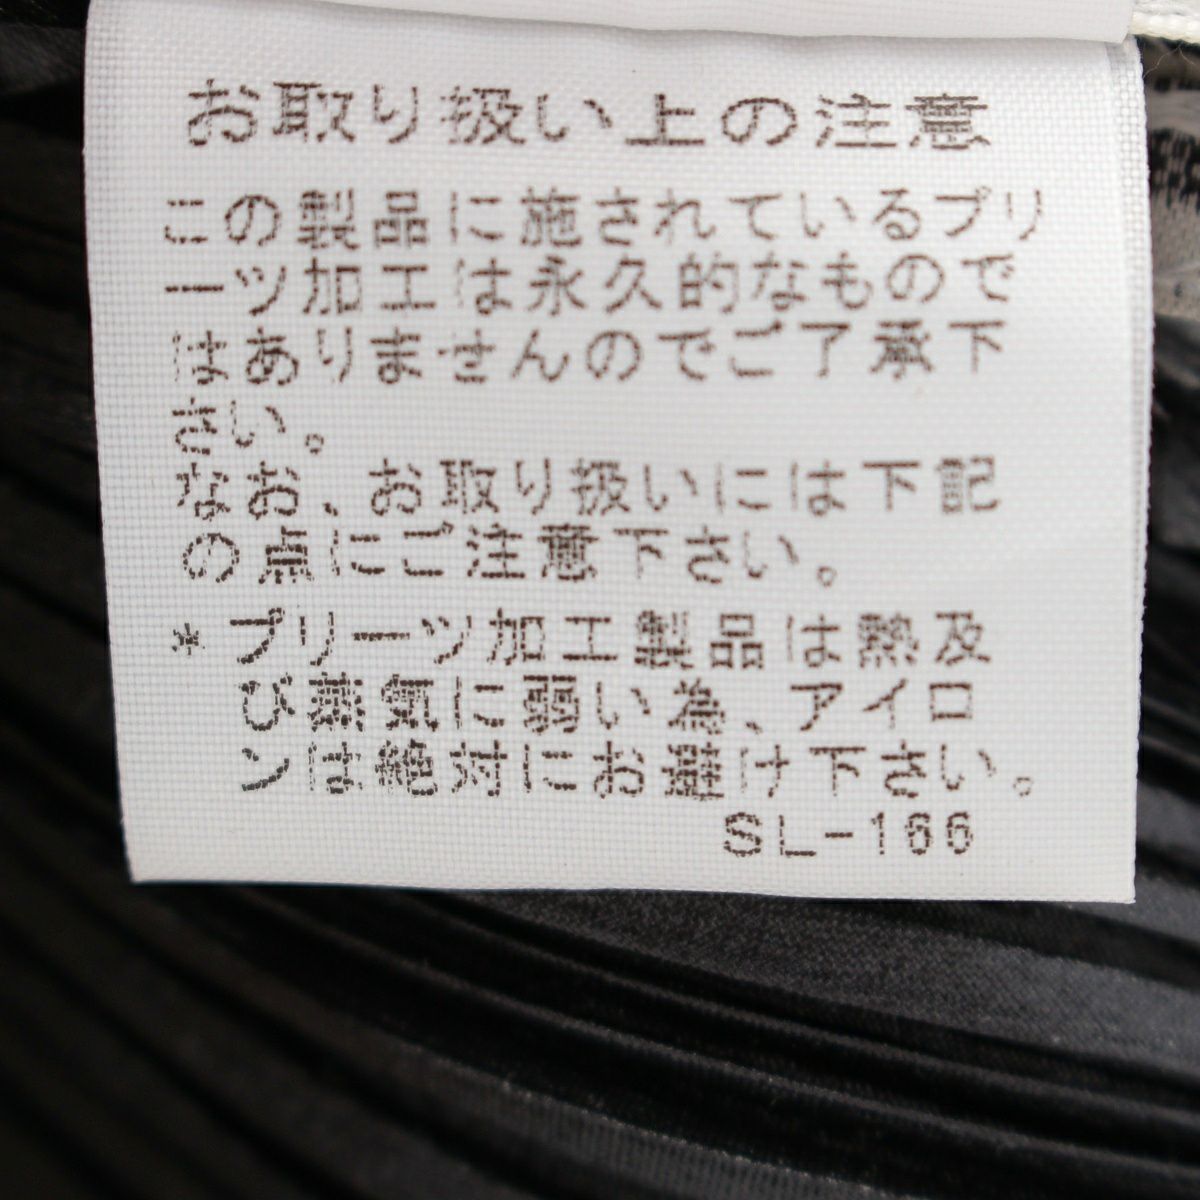 お取り扱い上の注意
この製品に施されているプリ
ーツ加工は永久的なもので
はありませんのでご了承下
さい。
なお、お取り扱いには下記
の点にご注意下さい。
*プリーツ加工製品は熱及
び蒸気に弱い為、アイロ
ンは絶対にお避け下さい。
SL-166